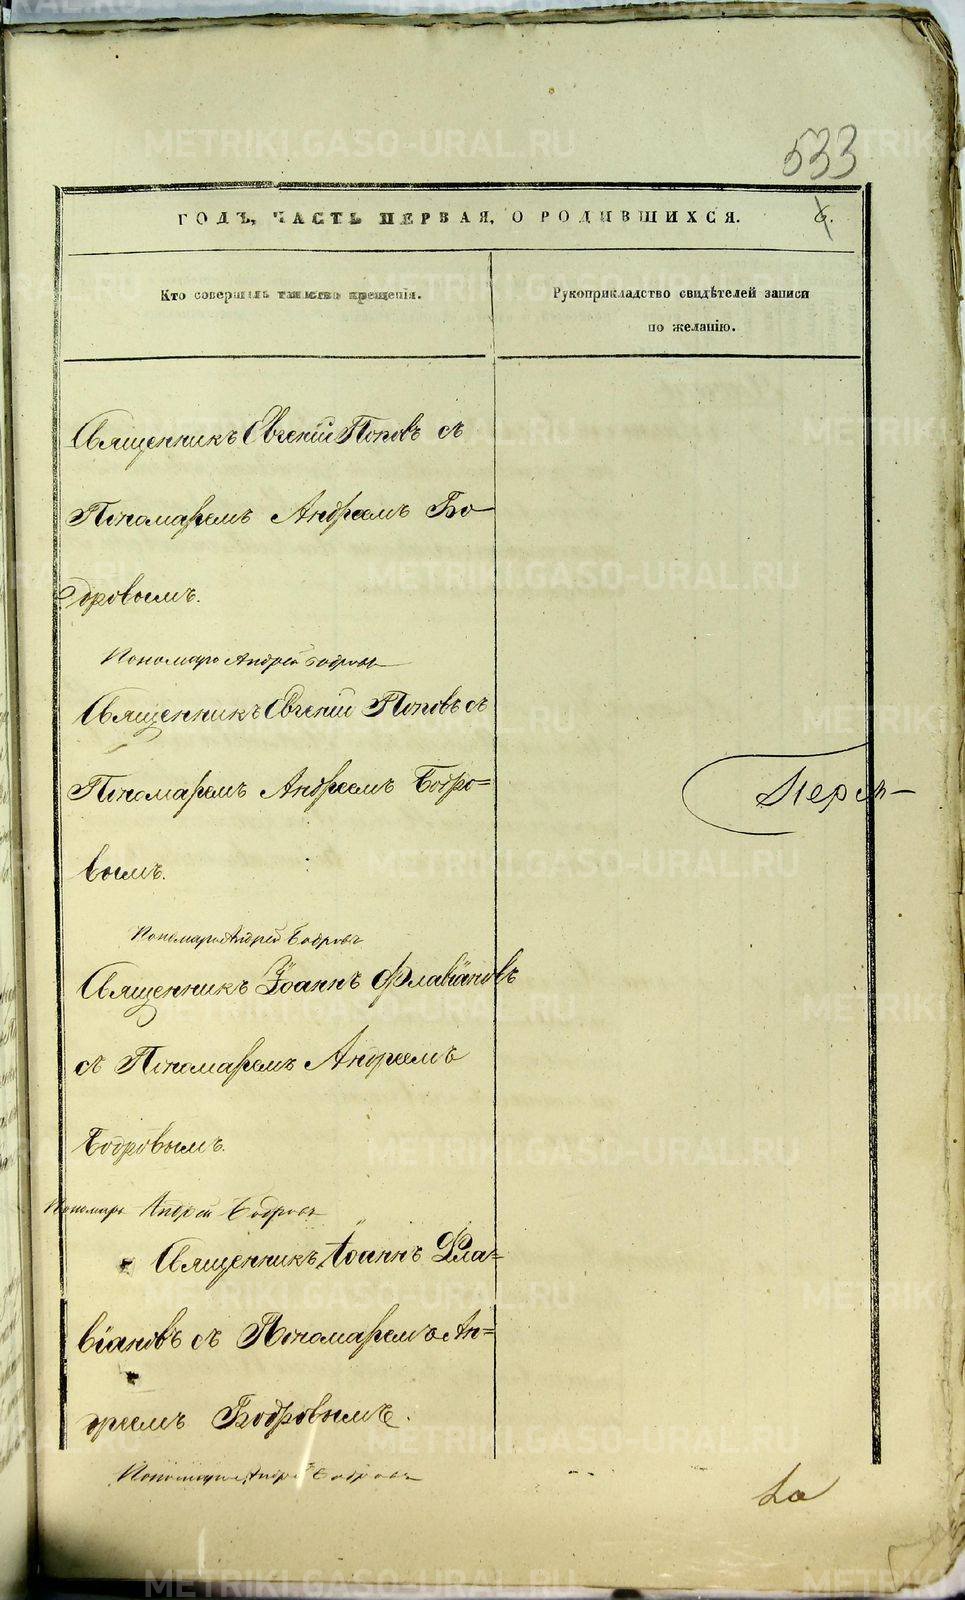 533
ГОДЪ, ЧАСТЬ ПЕРВАЯ, О РОДИВШИХСЯ. 6.
Кто совершилъ таинство крещенія.
Рукоприкладство свидѣтелей записи
по желанію.
Священникъ Евгеній Поповъ съ
Пономаремъ Андреемъ Бо-
дровымъ.
Пономарь Андрей Бодровъ
Священникъ Евгеній Поповъ съ
Пономаремъ Андреемъ Бодро=
вымъ.
Пономарь Андрей Бодровъ
Священникъ Іоаннъ Флавіановъ
съ Пономаремъ Андреемъ
Бодровымъ.
Пономарь Андрей Бодровъ
Священникъ Іоаннъ Фла=
віановъ съ Пономаремъ Ан=
дреемъ Бодровымъ.
Пономарь Андрей Бодровъ
METRIKI.GASO-URAL.RU